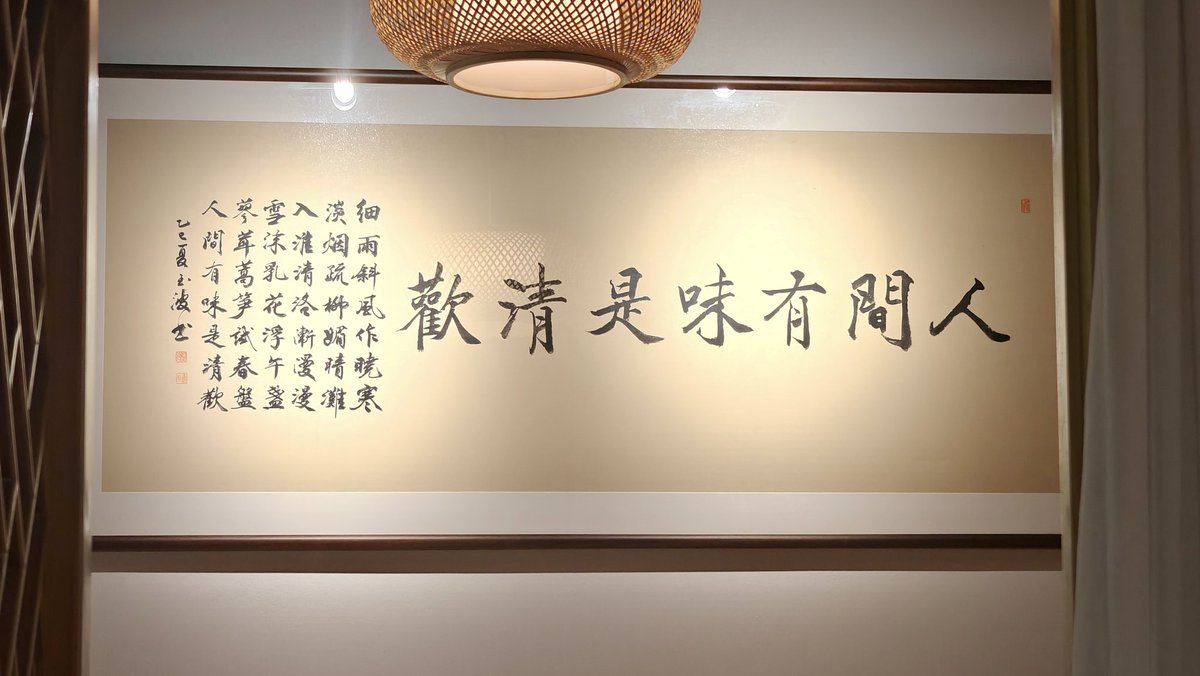 人間有味是清歡
細雨斜風作曉寒
淡烟疏柳媚晴灘
入淮清洛漸漫漫
雪沫乳花浮午盞
蓼茸蒿筍試春盤
人間有味是清歡
乙巳夏玉波书